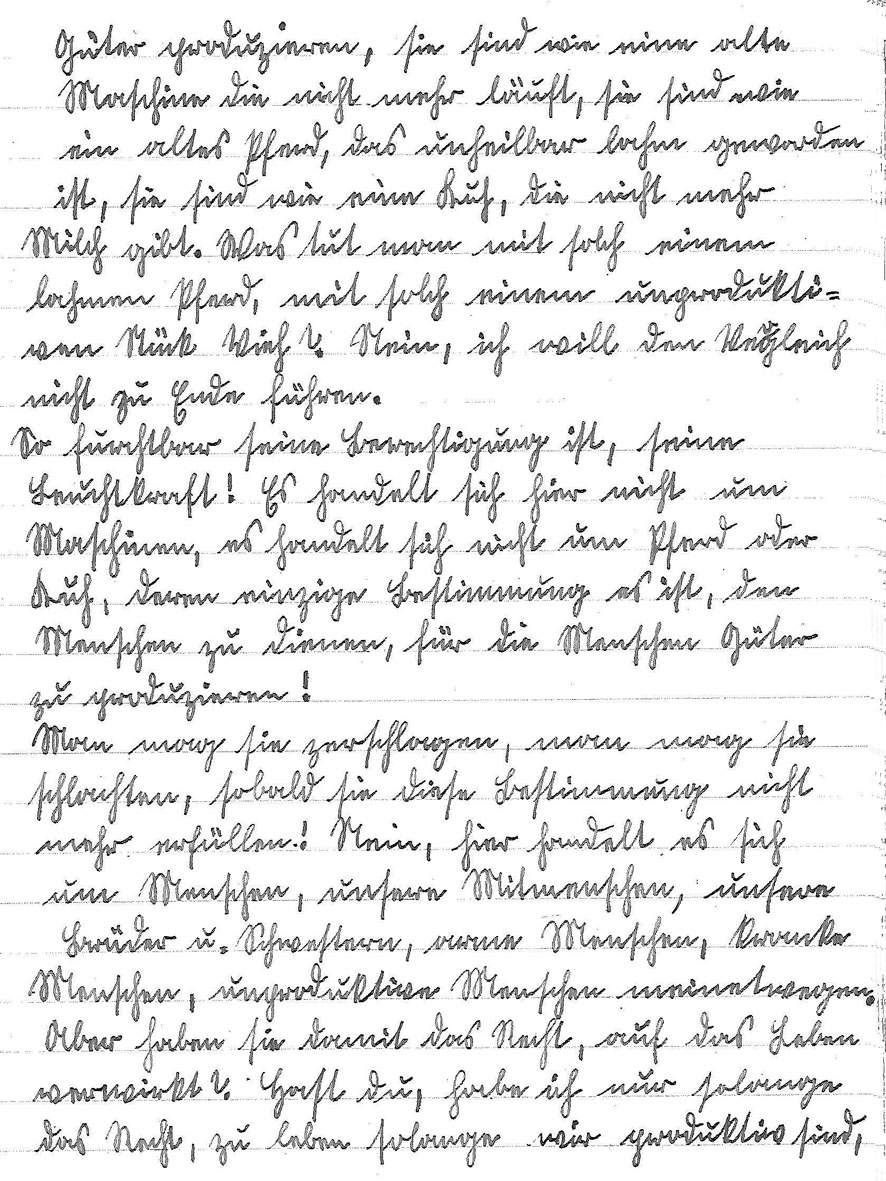 Güter produzieren, sie sind wie eine alte
Maschine die nicht mehr läuft, sie sind wie
ein altes Pferd, das unheilbar lahm geworden
ist, sie sind wie eine Kuh, die nicht mehr
Milch gibt. Was tut man mit solch einem
lahmen Pferd, mit solch einem unprodukti=
ven Stück Vieh?. Nein, ich will den Vergleich
nicht zu Ende führen.
So furchtbar seine Berechtigung ist, seine
Leuchtkraft! Es handelt sich hier nicht um
Maschinen, es handelt sich nicht um Pferd oder
Kuh, deren einzige Bestimmung es ist, den
Menschen zu dienen, für die Menschen Güter
zu produzieren!
Man mag sie zerschlagen, man mag sie
schlachten, sobald sie diese Bestimmung nicht
mehr erfüllen.! Nein, hier handelt es sich
um Menschen, unsere Mitmenschen, unsere
Brüder u. Schwestern, arme Menschen, kranke
Menschen, unproduktive Menschen meinetwegen.
Aber haben sie damit das Recht, auf das Leben
verwirkt?. Hast du, habe ich nur solange
das Recht, zu leben solange wir produktiv sind,